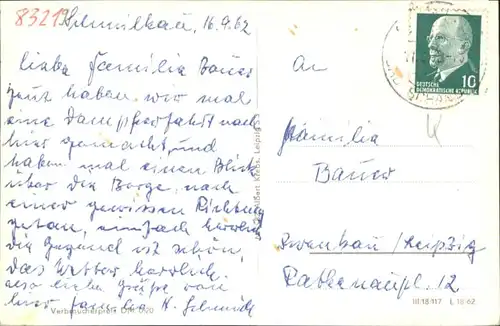 83219
Schmilkau, 16.9.62
Liebe Familie Bauer
heut haben wir mal
eine Dampferfahrt nach
hier gemacht und
haben mal einen Blick
über die Berge nach
einer gewissen Richtung
getan, einfach herrlich
die Gegend ist schön,
das Wetter herrlich.
also liebe Grüße von
hier Familie H. Schmidt
Verbraucherpreis DM 0,20
Albert Krebs, Leipzig S 3
An
Familie
Bauer
Zwenkau/Leipzig
Rathenaupl. 12
III/18/117 L 18/62
10
DEUTSCHE
DEMOKRATISCHE REPUBLIK